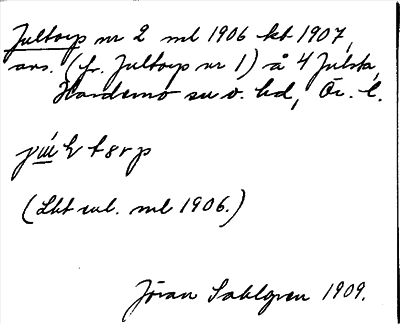 Jultorp nr 2 ml 1906 kt 1907,
avs. (fr. Jultorp nr 1) å 4 Julsta,
Hardemo sn o. hd, Ör. l.
(Lkt enl. ml 1906.)
Jöran Sahlgren 1909.